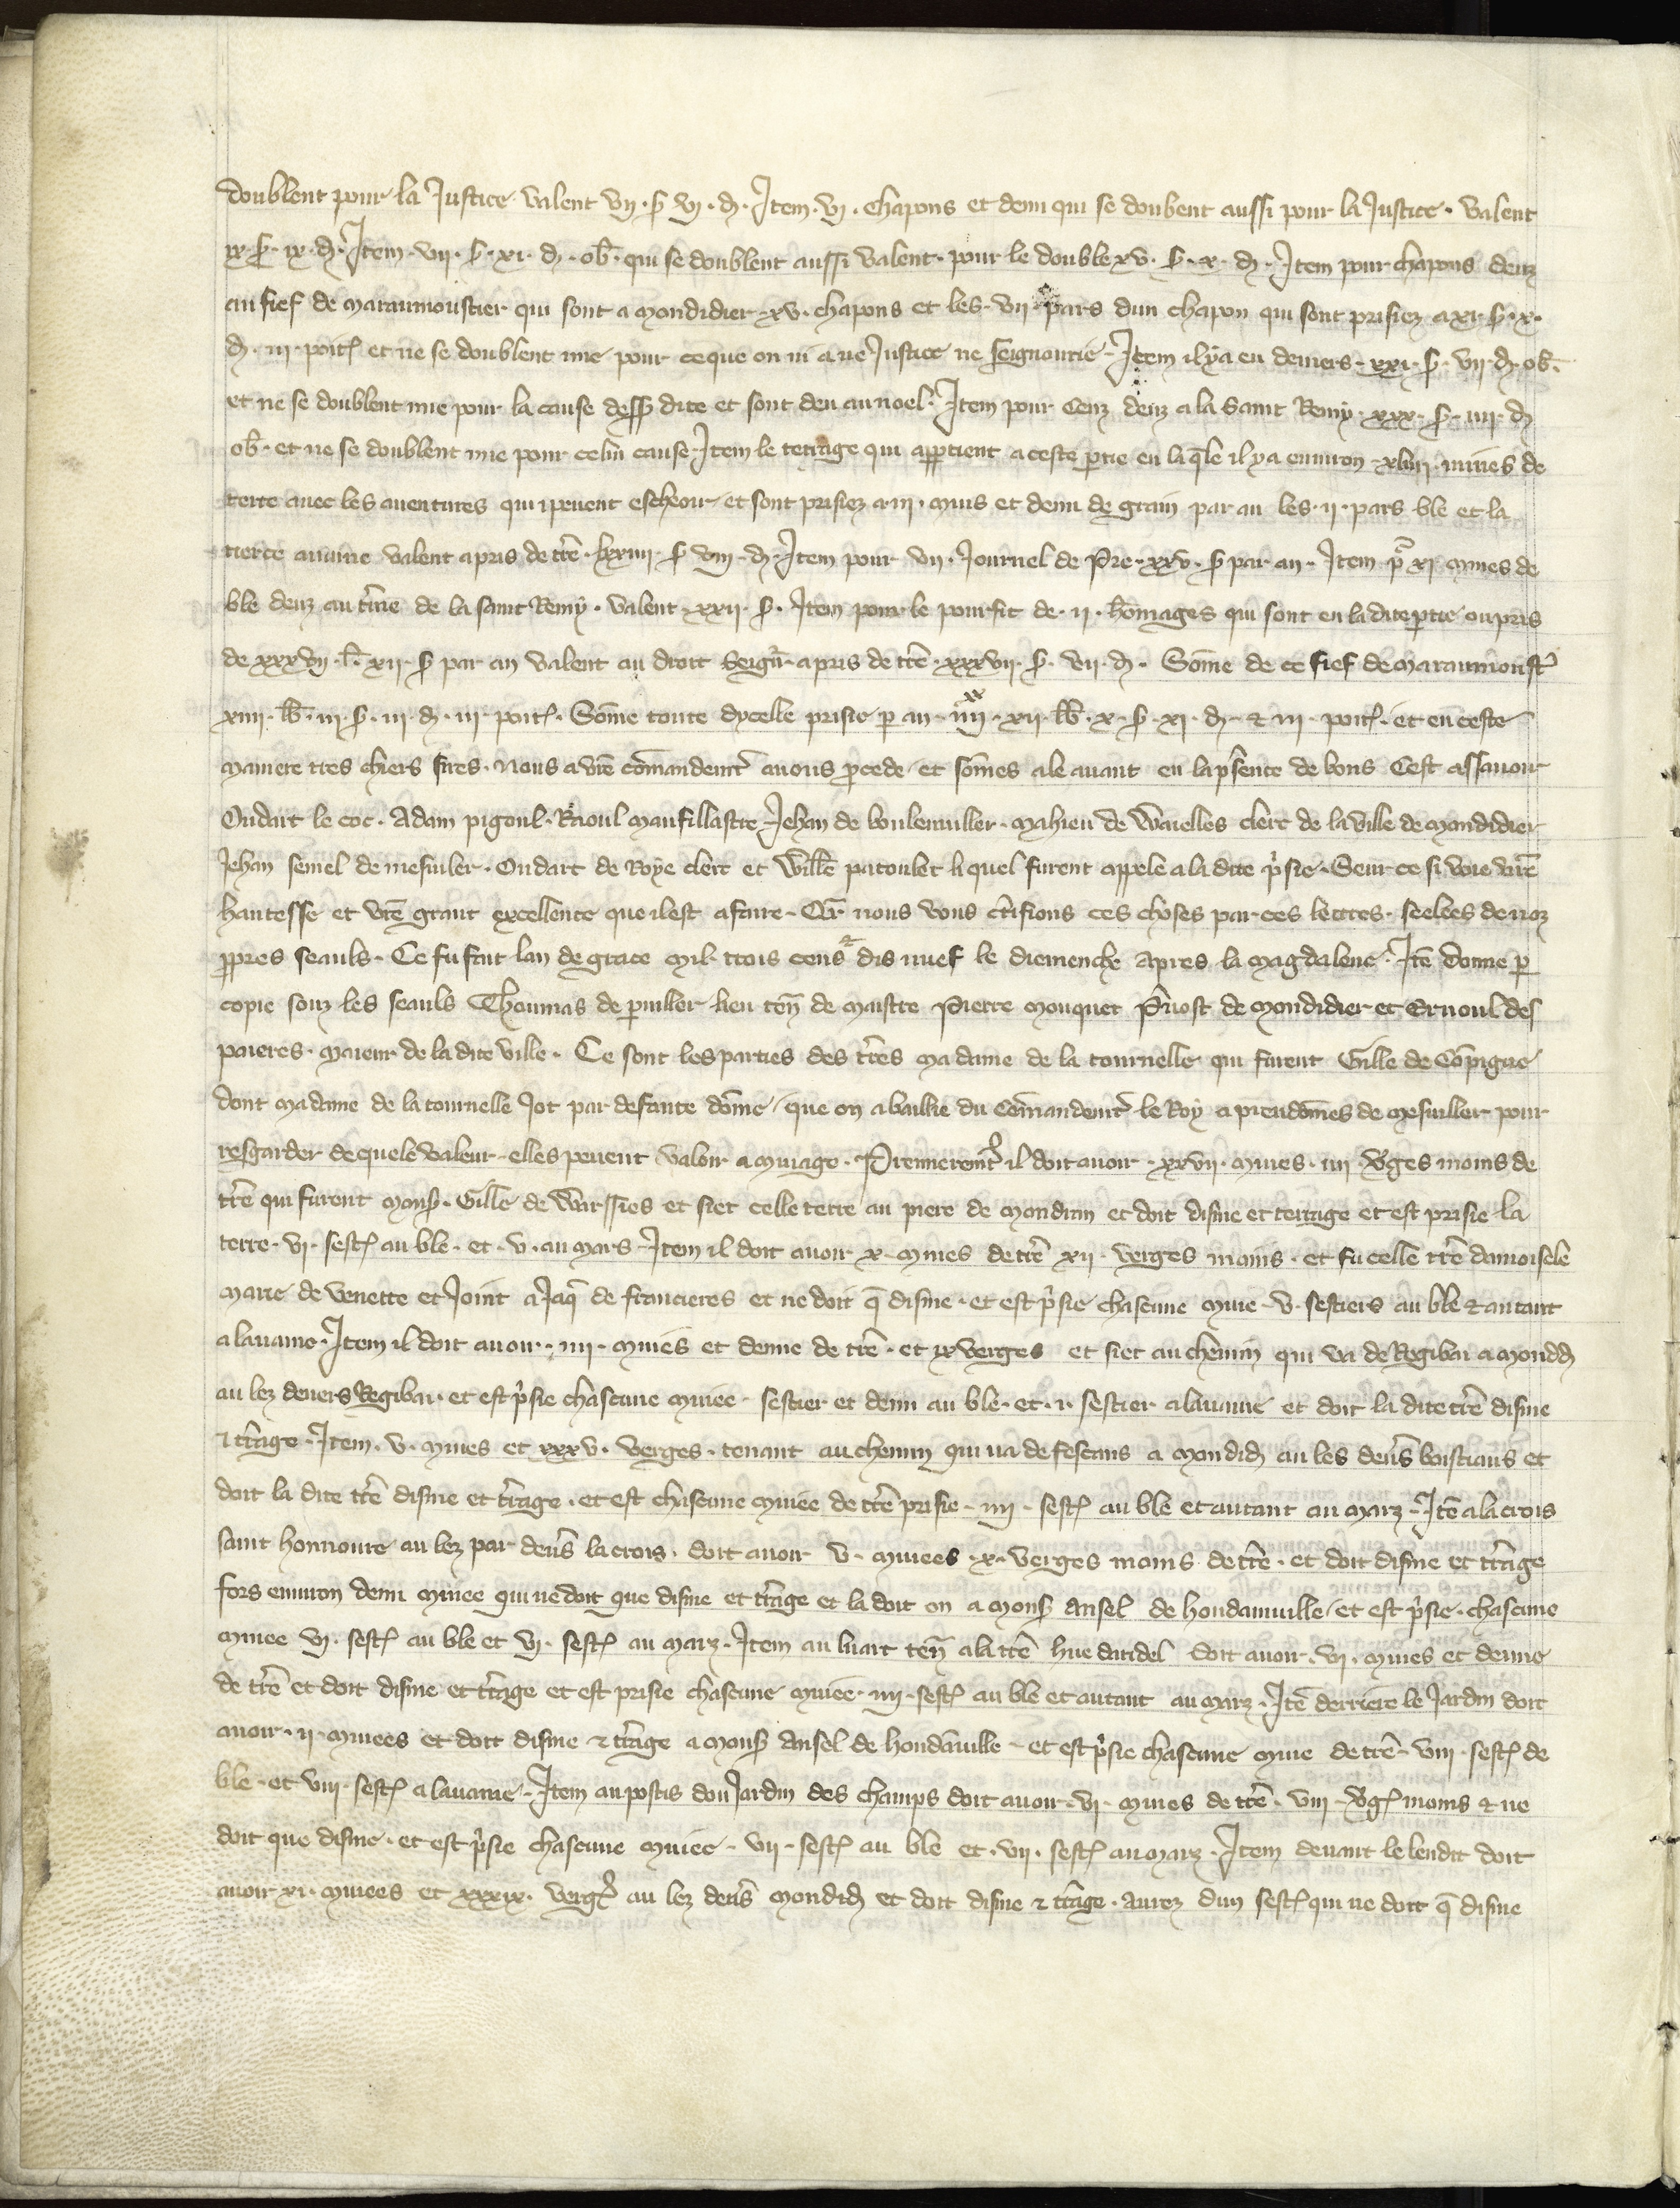 doublent pour la Justice valent vij. s vj. d. Item. vj. chapons et demi qui se doubent aussi pour la Justice. valent
ix. s. ix. d. Item. vij. s. xi. d. ob. qui se doublent aussi valent. pour le double xv. s. x. d. Item pour chapons deuz
au fief de maraumoustier qui sont a mondidier. xv. chapons et les. vij. pars dun chapon qui sont prisiez. a xi. s. x.
d. iii. poit et ne se doublent mie pour ce que on ni a ne Justice ne seignourie. Item il y a en deniers. xxi. s. vij. d. ob.
et ne se doublent mie pour la cause dess dite et sont deu au noel. Item pour Cenz deuz a la Saint Remy. xxx. s. iiij. d
ob. et ne se doublent mie pour celui cause. Item le terrage qui appartient a ceste ptie en laqle il ya environ. xlviii. mines de
terre avec les aventures qui i pevent escheoir et sont prisiez a iii. muis et demi de grain par an les. ii. pars ble et la
tierce avaine valent a pris de tre. lxxiiii. s viii. d. Item pour vii. Journel de Pre. xxv. s par an. Item pr xi mines de
ble deuz au tme de la saint Remy. valent. xxii. s. Item pour le pourfit de. ii. homages qui sont en la dite ptie ou pris
de xxxvij. l. xii. s par an valent au droit seignr. a pris de tre. xxxvii. s. vii. d. Some de ce fief de maraumoustr
xiiii. lb. iii. s. iii. d. iii. poit. Some toute dycelle prisie p an. iiij xx. xii. lb. x. s. xi. d. & iii. poit. et en ceste
maniere tres chiers sires. nous a vre comandemt avons pcede et somes ale avant en la psence de bons Cest assavoir
Oudart le coc. Adam pigoul. Raoul maufillastre. Jehan de boulenviller. mahieu de Waielles clerc de la ville de mondidier
Jehan semel de mesviler. Oudart de Roye clerc et Wille patoulet li quel furent appele a la dite prsie. Seur ce si voie vre
hautesse et vre grant excellence que il est a faire. Car nous vous ctifions ces choses par ces lettres. seelees de noz
ppres seauls. Ce fu fait lan de grace mil. trois cens & dis nuef le diemenche apres la magdalene. Ite donne p
copie souz les seauls Thoumas de pviller lieu ten de maistre Pierre mouquet Pvost de mondidier et Ernoul des
paieres. maieur de la dite ville. Ce sont les parties des tres ma dame de la tournelle qui furent Gille de Copigne
dont madame de la tournelle Jot par defaute dome que on a baillie du comandemt le Roy a preudomes de mesviller pour
resgarder de quele valeur elles pevent valoir a muiage. Premieremt il doit avoir. xxvii. mines. iiii vges moins de
tre qui furent mons. Gille de Warssies et siet celle terre au piere de mondian et doit disme et terrage et est prisie la
terre. vi. sest au ble. et. v. au mars. Item il doit avoir x. mines de tre xii. verges moins. et fu celle tre damoisele
marie de venette et Joint a Jaq de francieres et ne doit q disme. et est prsie chascune mine. v. sestiers au ble & autant
a lavaine. Item il doit avoir. iiii. mines et demie de tre. et ix verges et siet au chemin qui va de Regibai a mondd
au lez devers Regibai. et est prsie chascune minee. sestier et demi au ble. et. i. sestier a lavaine et doit la dite tre disme
& trage. Item. v. mines et xxxv. verges. tenant au chemin qui va de fescans a mondid au les devs boistiaus et
doit la dite tre disme et trage. et est chascune minee de tre prisie. iiii. sest au ble et autant au marz. Ite a la crois
saint honnoure au lez par devs la crois. doit avoir v. minees. x. verges moins de tre. et doit disme et trage
fors environ demi minee qui ne doit que disme et trage et la doit on a mons ansel de hondainville et est prsie. chascune
minee vi. sest au ble et vi. sest au marz. Item au luart ten a la tre hue daridel doit avoir. vi. mines et demie
de tre et doit disme et trage et est prisie chascune minee. iiii. sest au ble et autant au marz. Ite derriere le Jardin doit
avoir. ii. minees et doit disme & trage a mons ansel de hondaville. et est prsie chascune mine de tre. viii. sest de
ble. et viii. sest a lavaine. Item au postis dou Jardin des champs doit avoir. vi. mines de tre. viii. vg moins & ne
doit que disme. et est prsie chascune minee. vii. sest au ble et. vii. sest au marz. Item devant le lendit doit
avoir xi. minees et xxxix. verg au lez devs mondid et doit disme & trage. aurez dun sest qui ne doit q disme